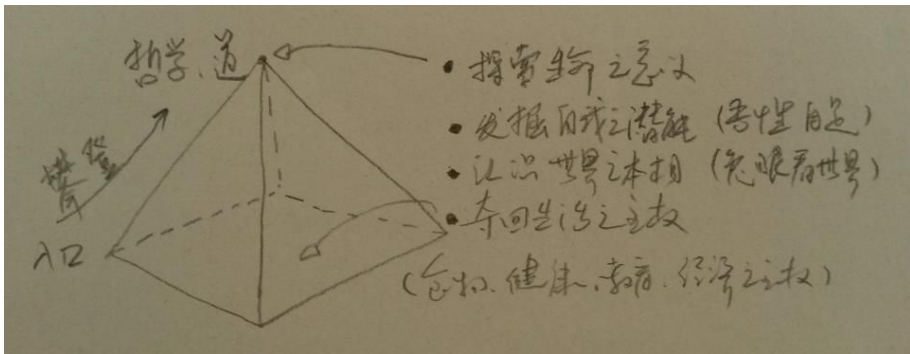 哲学、道
攀登
入口
• 探索生命之意义
• 发掘自我之潜能（吾性自足）
• 认识世界之本相（慧眼看世界）
• 夺回生活之主权
（食物、健康、教育、经济之主权）